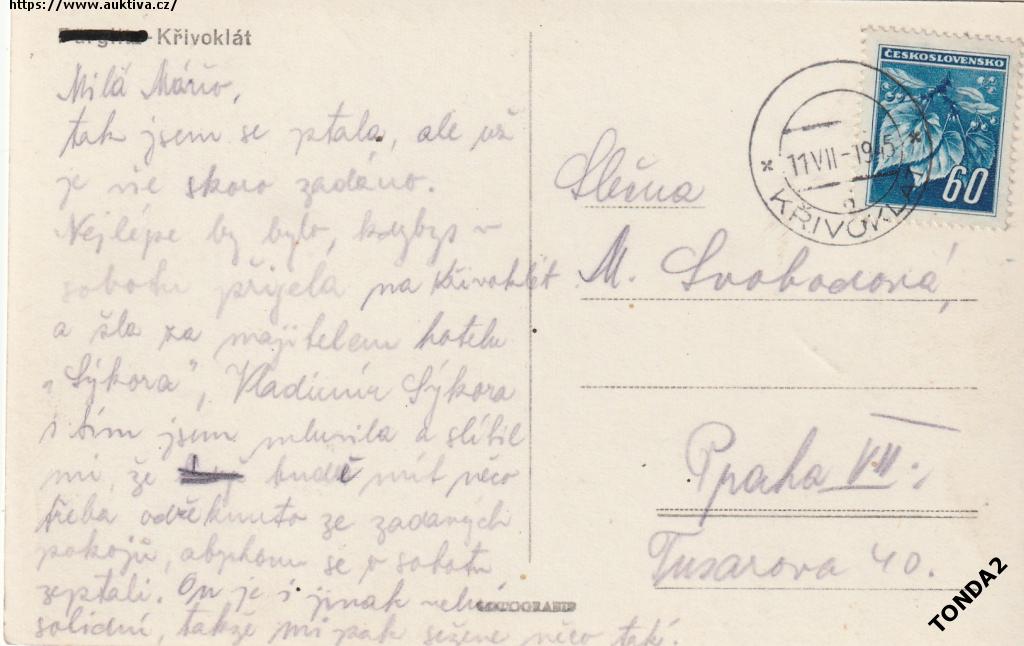 https://www.auktiva.cz/
- Křivoklát
Milá Mářo,
tak jsem se ptala, ale už
je vše skoro zadáno.
Nejlépe by bylo, kdybys v
sobotu přijela na Křivoklát
a šla za majitelem hotelu
„Sýkora", Vladimír Sýkora
s tím jsem mluvila a slíbil
mi, že bude mít něco
třeba odřeknuto ze zadaných
pokojů, abychom se v sobotu
zeptali. On je i jinak velmi
solidní, takže mi pak sežene něco také.
ČESKOSLOVENSKO
60
11 VII - 1945
KŘIVOKLÁT
Slečna
M. Svobodová,
Praha VII.:
Tusarova 40.
FOTOGRAFIE
TONDA2